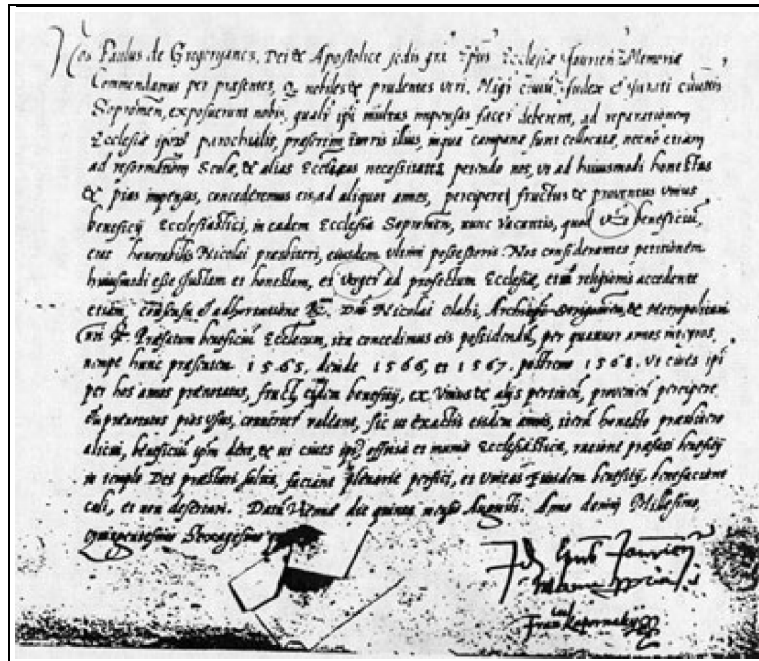 Nos Paulus de Gregoryancz, Dei & Apostolice sedis gra Epus Ecclesiæ Jaurien
Commendamus per præsentes, nobiles & prudentes viri, Mgr Civiu Judex & Jurati civitatis
Sopronien, exposuerunt nobis, qualr ipi multas impensas facer deberent, ad reparationem
Ecclesiæ ipsius parochialis, præsertim turris illius, in qua campanæ sunt collocatæ, necno etiam
ad reformationem Scolæ, & alias Eccl necessitates, petendo nos, vt ad huiusmodi honestas
& pias impensas, concederemus eis, ad aliquot annos, percipere fructus & proventus vnius
beneficij Ecclesiastici, in eadem Ecclesia Sopronien, nunc vacantis, quod beneficiu,
erat honorabilis Nicolai presbiteri, eiusdem vltimi possessoris. Nos considerantes petitionem
huiusmodi esse Justam et honestam, et Verger ad profectum Ecclesiæ, etia religionis accedente
etiam, consensu & adhortatione Dni Nicolai Olahi, Archiepi Strigonien, & Metropolitani
Præfatum beneficiu Ecclecum, ita concedimus eis possidendu, per quatuor annos integros,
nempe hunc præsentem 1565, deinde 1566, et 1567. postremo 1568. Vt cives ipi
per hos annos prænotatos, fruct, eiusdem beneficij, ex Vineis & alijs pertinen, provenien percipere,
prænotatos pios vsus, convertere valeant, sic vt exactis eisdem annis, iteru honesto presbitero
alicui, beneficiu ipm detur, & ni cives ipi, officia et Ecclesiastica, ratione præfati beneficij
in templo Dei præstari solita, faciant plenarie perfici, et Vineas Eiusdem beneficij, benefaciant
coli, et non desertari. Datu Viennæ die quinta mensis Augusti. Anno domini Millesimo,
quingentesimo Sexagesimo
Jaurien
manu ppria